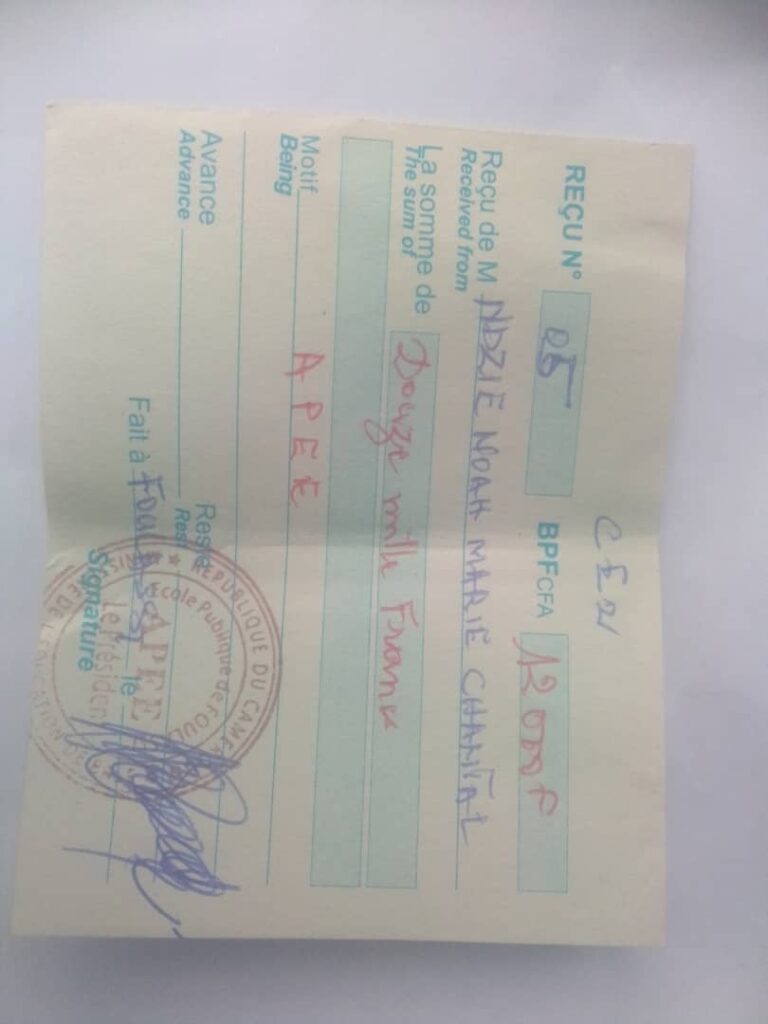 CE2
REÇU N° 05 BPFCFA 12 000F
Reçu de M NDZIE NOAH MARIE CHANTAL
Received from
La somme de Douze mille Francs
The sum of
Motif APEE
Being
Avance Reste
Advance Rest
Fait à le
Signature
RÉPUBLIQUE DU CAME
Ecole Publique de FOUL
APEE
Le Président